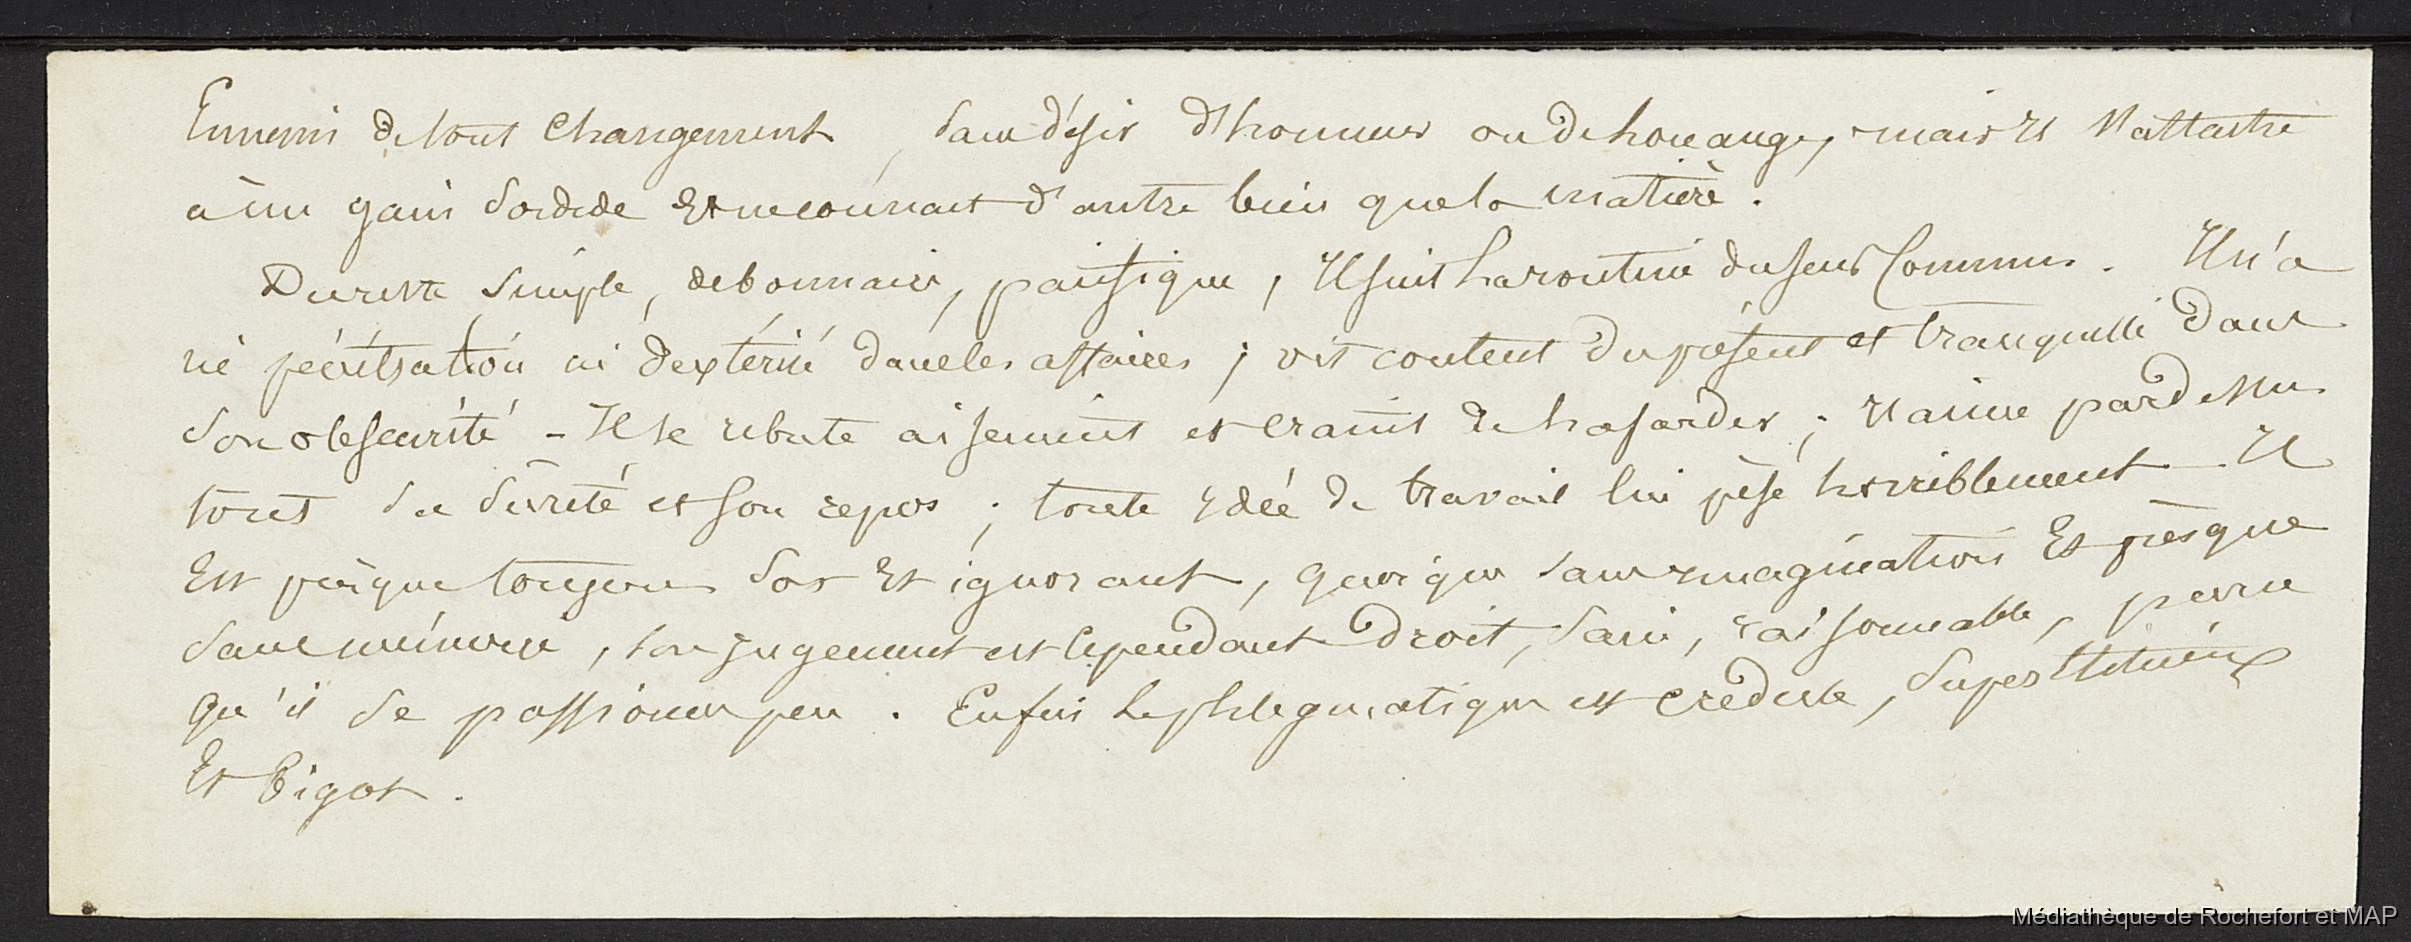 Ennemi de tout changement, sans désir d'honneur ou de louange, mais il s'attache
à un gain sordide et ne connait d'autre bien que la matière.
Du reste simple, debonnaire, pacifique, il suit la routine du sens commun. Il n'a
ni pénétration ni dextérité dans les affaires ; vit content du présent et tranquille dans
son obscurité - Il se rebute aisement et craint de hasarder ; il aime par dessus
tout sa sureté et son repos ; toute ydée de travail lui pèse horriblement - Il
est presque toujours sot et ignorant, quoique sans ymagination et presque
sans mémoire, son jugement est cependant droit, sain, raisonnable, parce
qu'il se passionne peu. Enfin le phlegmatique est credule, superstitieux
et bigot.
Médiathèque de Rochefort et MAP